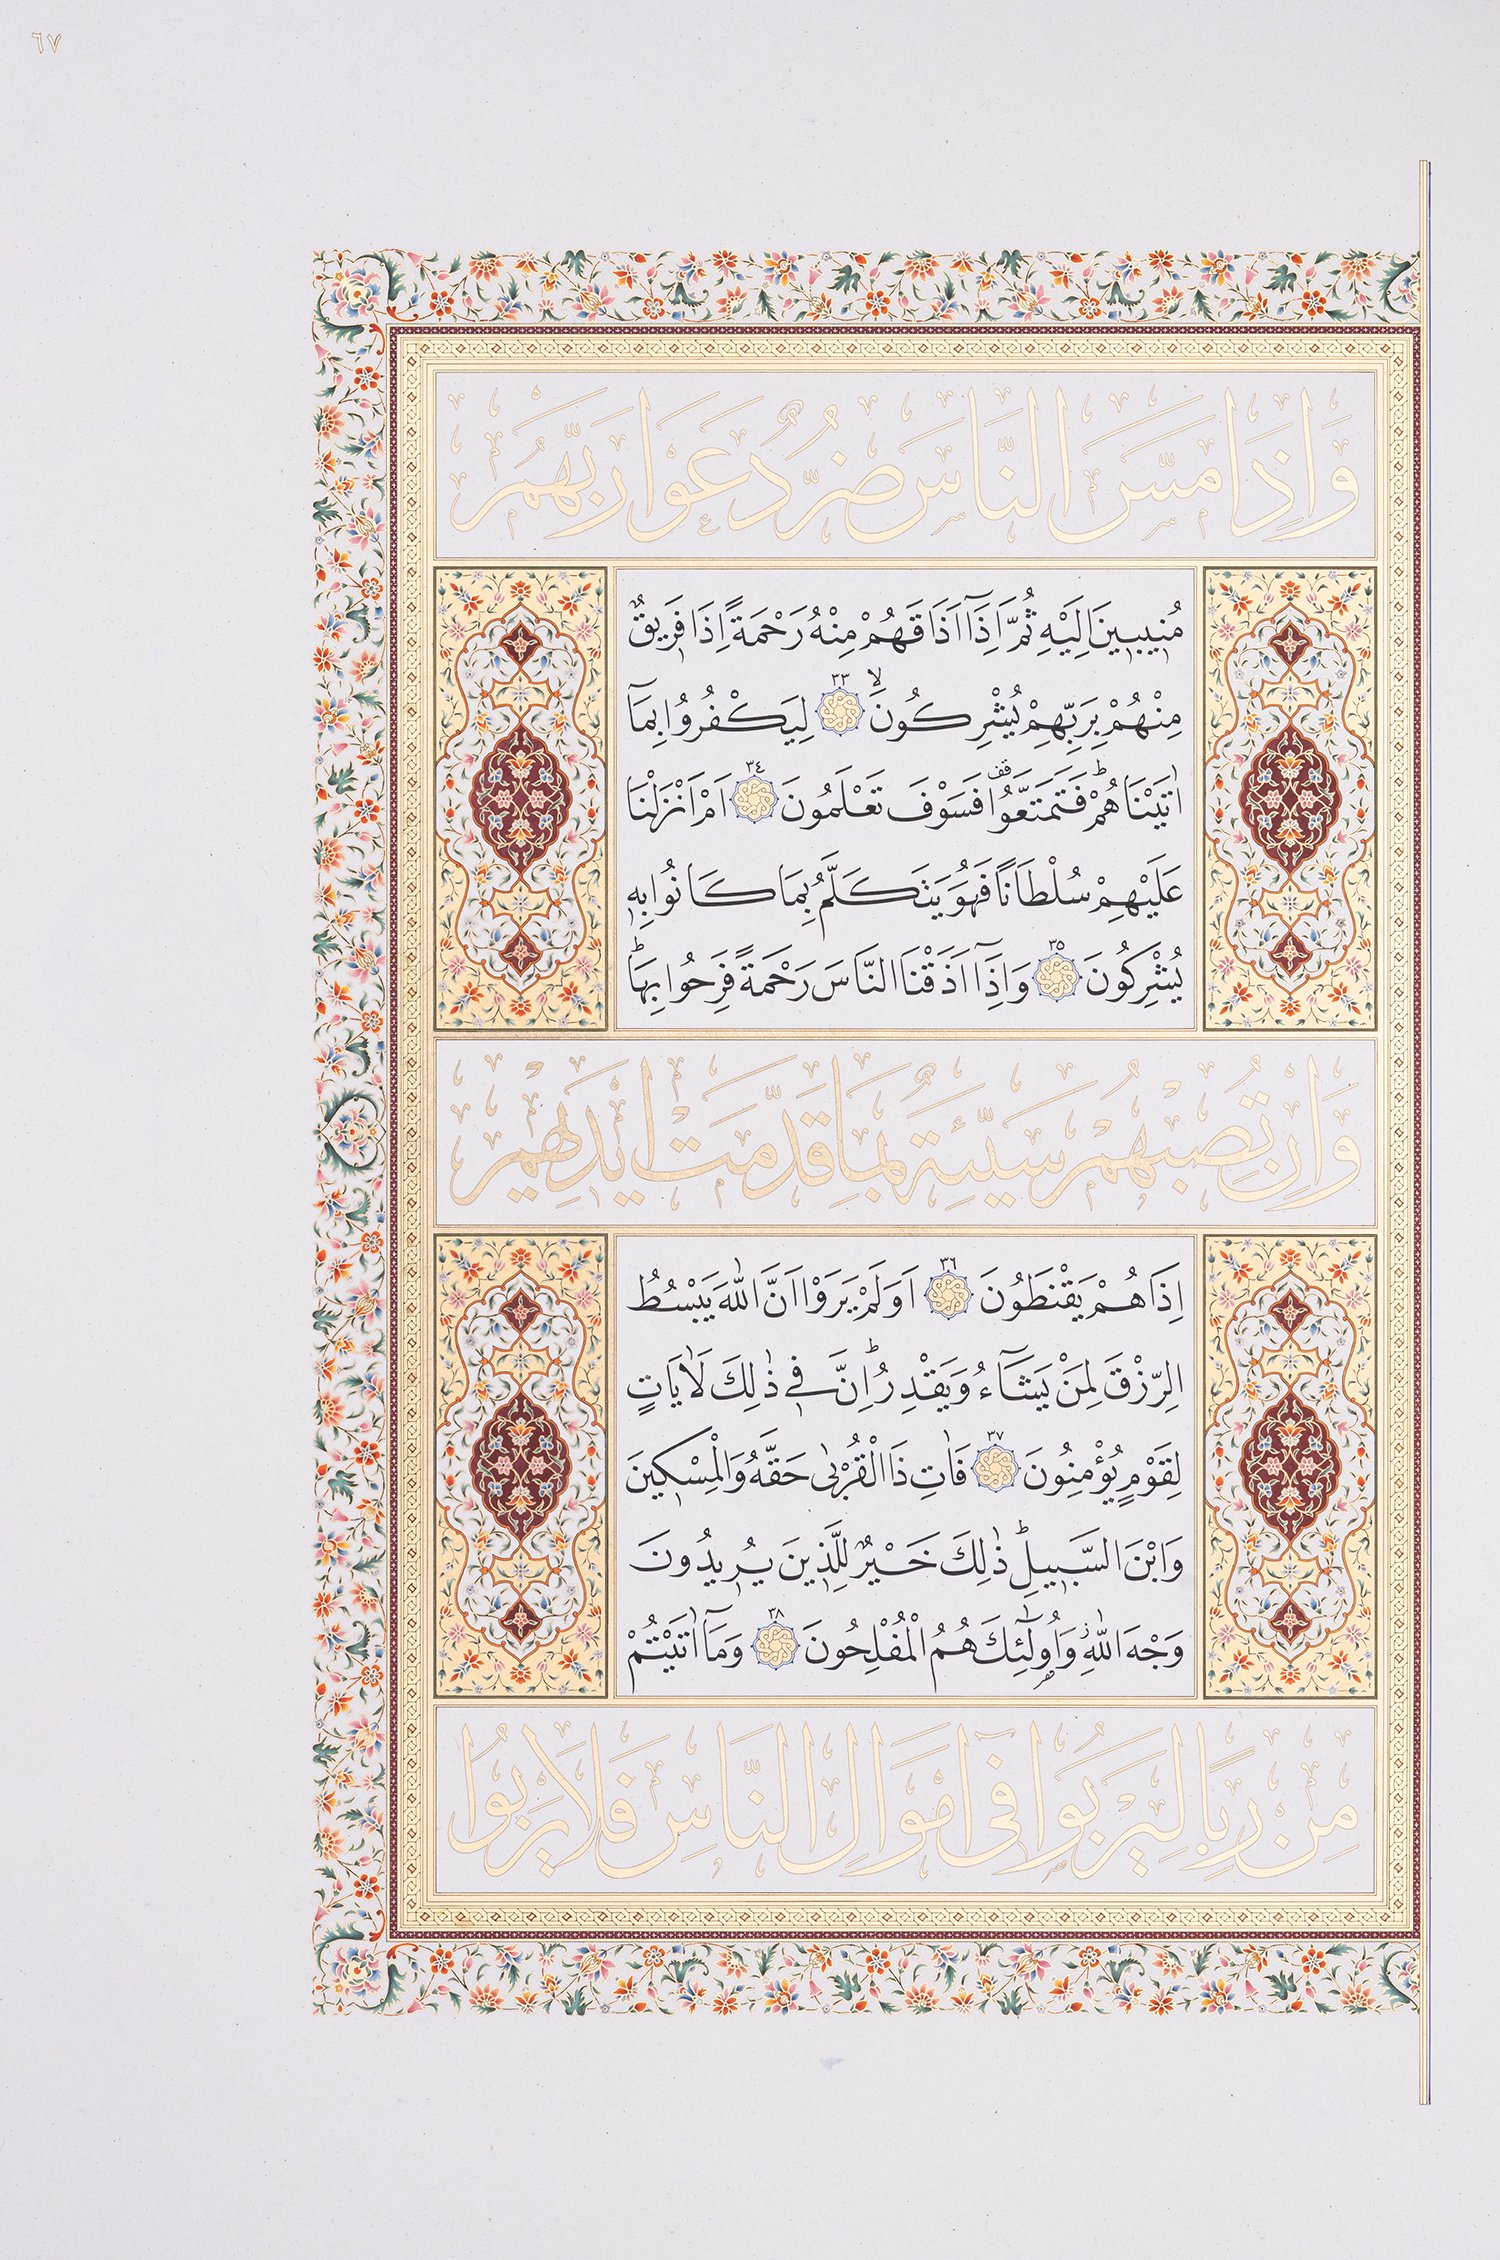 ٦٧
وَاِذَا مَسَّ النَّاسَ ضُرٌّ دَعَوْا رَبَّهُمْ
مُن۪يب۪ينَ اِلَيْهِ ثُمَّ اِذَٓا اَذَاقَهُمْ مِنْهُ رَحْمَةً اِذَا فَر۪يقٌ
مِنْهُمْ بِرَبِّهِمْ يُشْرِكُونَۙ ٣٣ لِيَكْفُرُوا بِمَٓا
اٰتَيْنَاهُمْۜ فَتَمَتَّعُوا۠ فَسَوْفَ تَعْلَمُونَ ٣٤ اَمْ اَنْزَلْنَا
عَلَيْهِمْ سُلْطَانًا فَهُوَ يَتَكَلَّمُ بِمَا كَانُوا بِه۪
يُشْرِكُونَ ٣٥ وَاِذَٓا اَذَقْنَا النَّاسَ رَحْمَةً فَرِحُوا بِهَاۜ
وَاِنْ تُصِبْهُمْ سَيِّئَةٌ بِمَا قَدَّمَتْ اَيْد۪يهِمْ
اِذَا هُمْ يَقْنَطُونَ ٣٦ اَوَلَمْ يَرَوْا اَنَّ اللّٰهَ يَبْسُطُ
الرِّزْقَ لِمَنْ يَشَٓاءُ وَيَقْدِرُۜ اِنَّ ف۪ي ذٰلِكَ لَاٰيَاتٍ
لِقَوْمٍ يُؤْمِنُونَ ٣٧ فَاٰتِ ذَا الْقُرْبٰى حَقَّهُ وَالْمِسْك۪ينَ
وَابْنَ السَّب۪يلِۜ ذٰلِكَ خَيْرٌ لِلَّذ۪ينَ يُر۪يدُونَ
وَجْهَ اللّٰهِۘ وَاُو۬لٰٓئِكَ هُمُ الْمُفْلِحُونَ ٣٨ وَمَٓا اٰتَيْتُمْ
مِنْ رِبًا لِيَرْبُوَا ف۪ٓي اَمْوَالِ النَّاسِ فَلَا يَرْبُوا